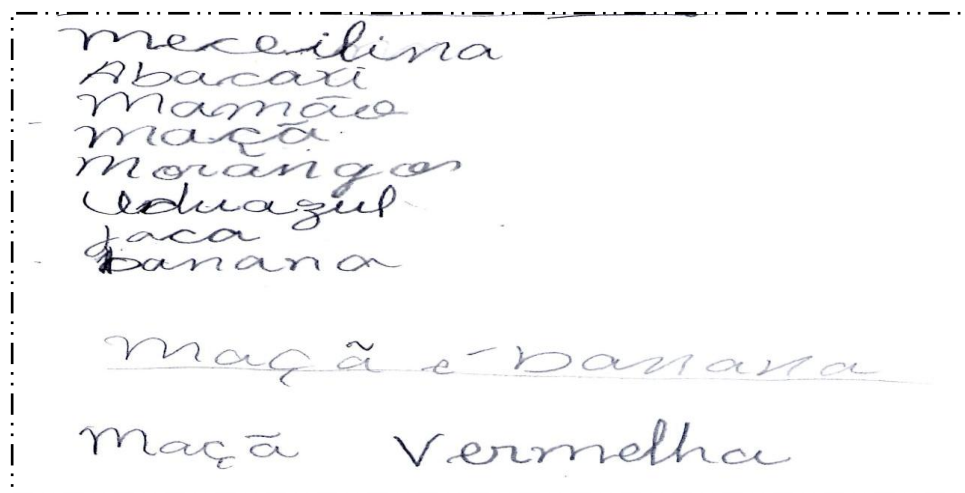 Meceilina
Abacaxi
Mamão
maçã
Morangos
Uduazul
jaca
banana
Maçã e banana
Maçã Vermelha